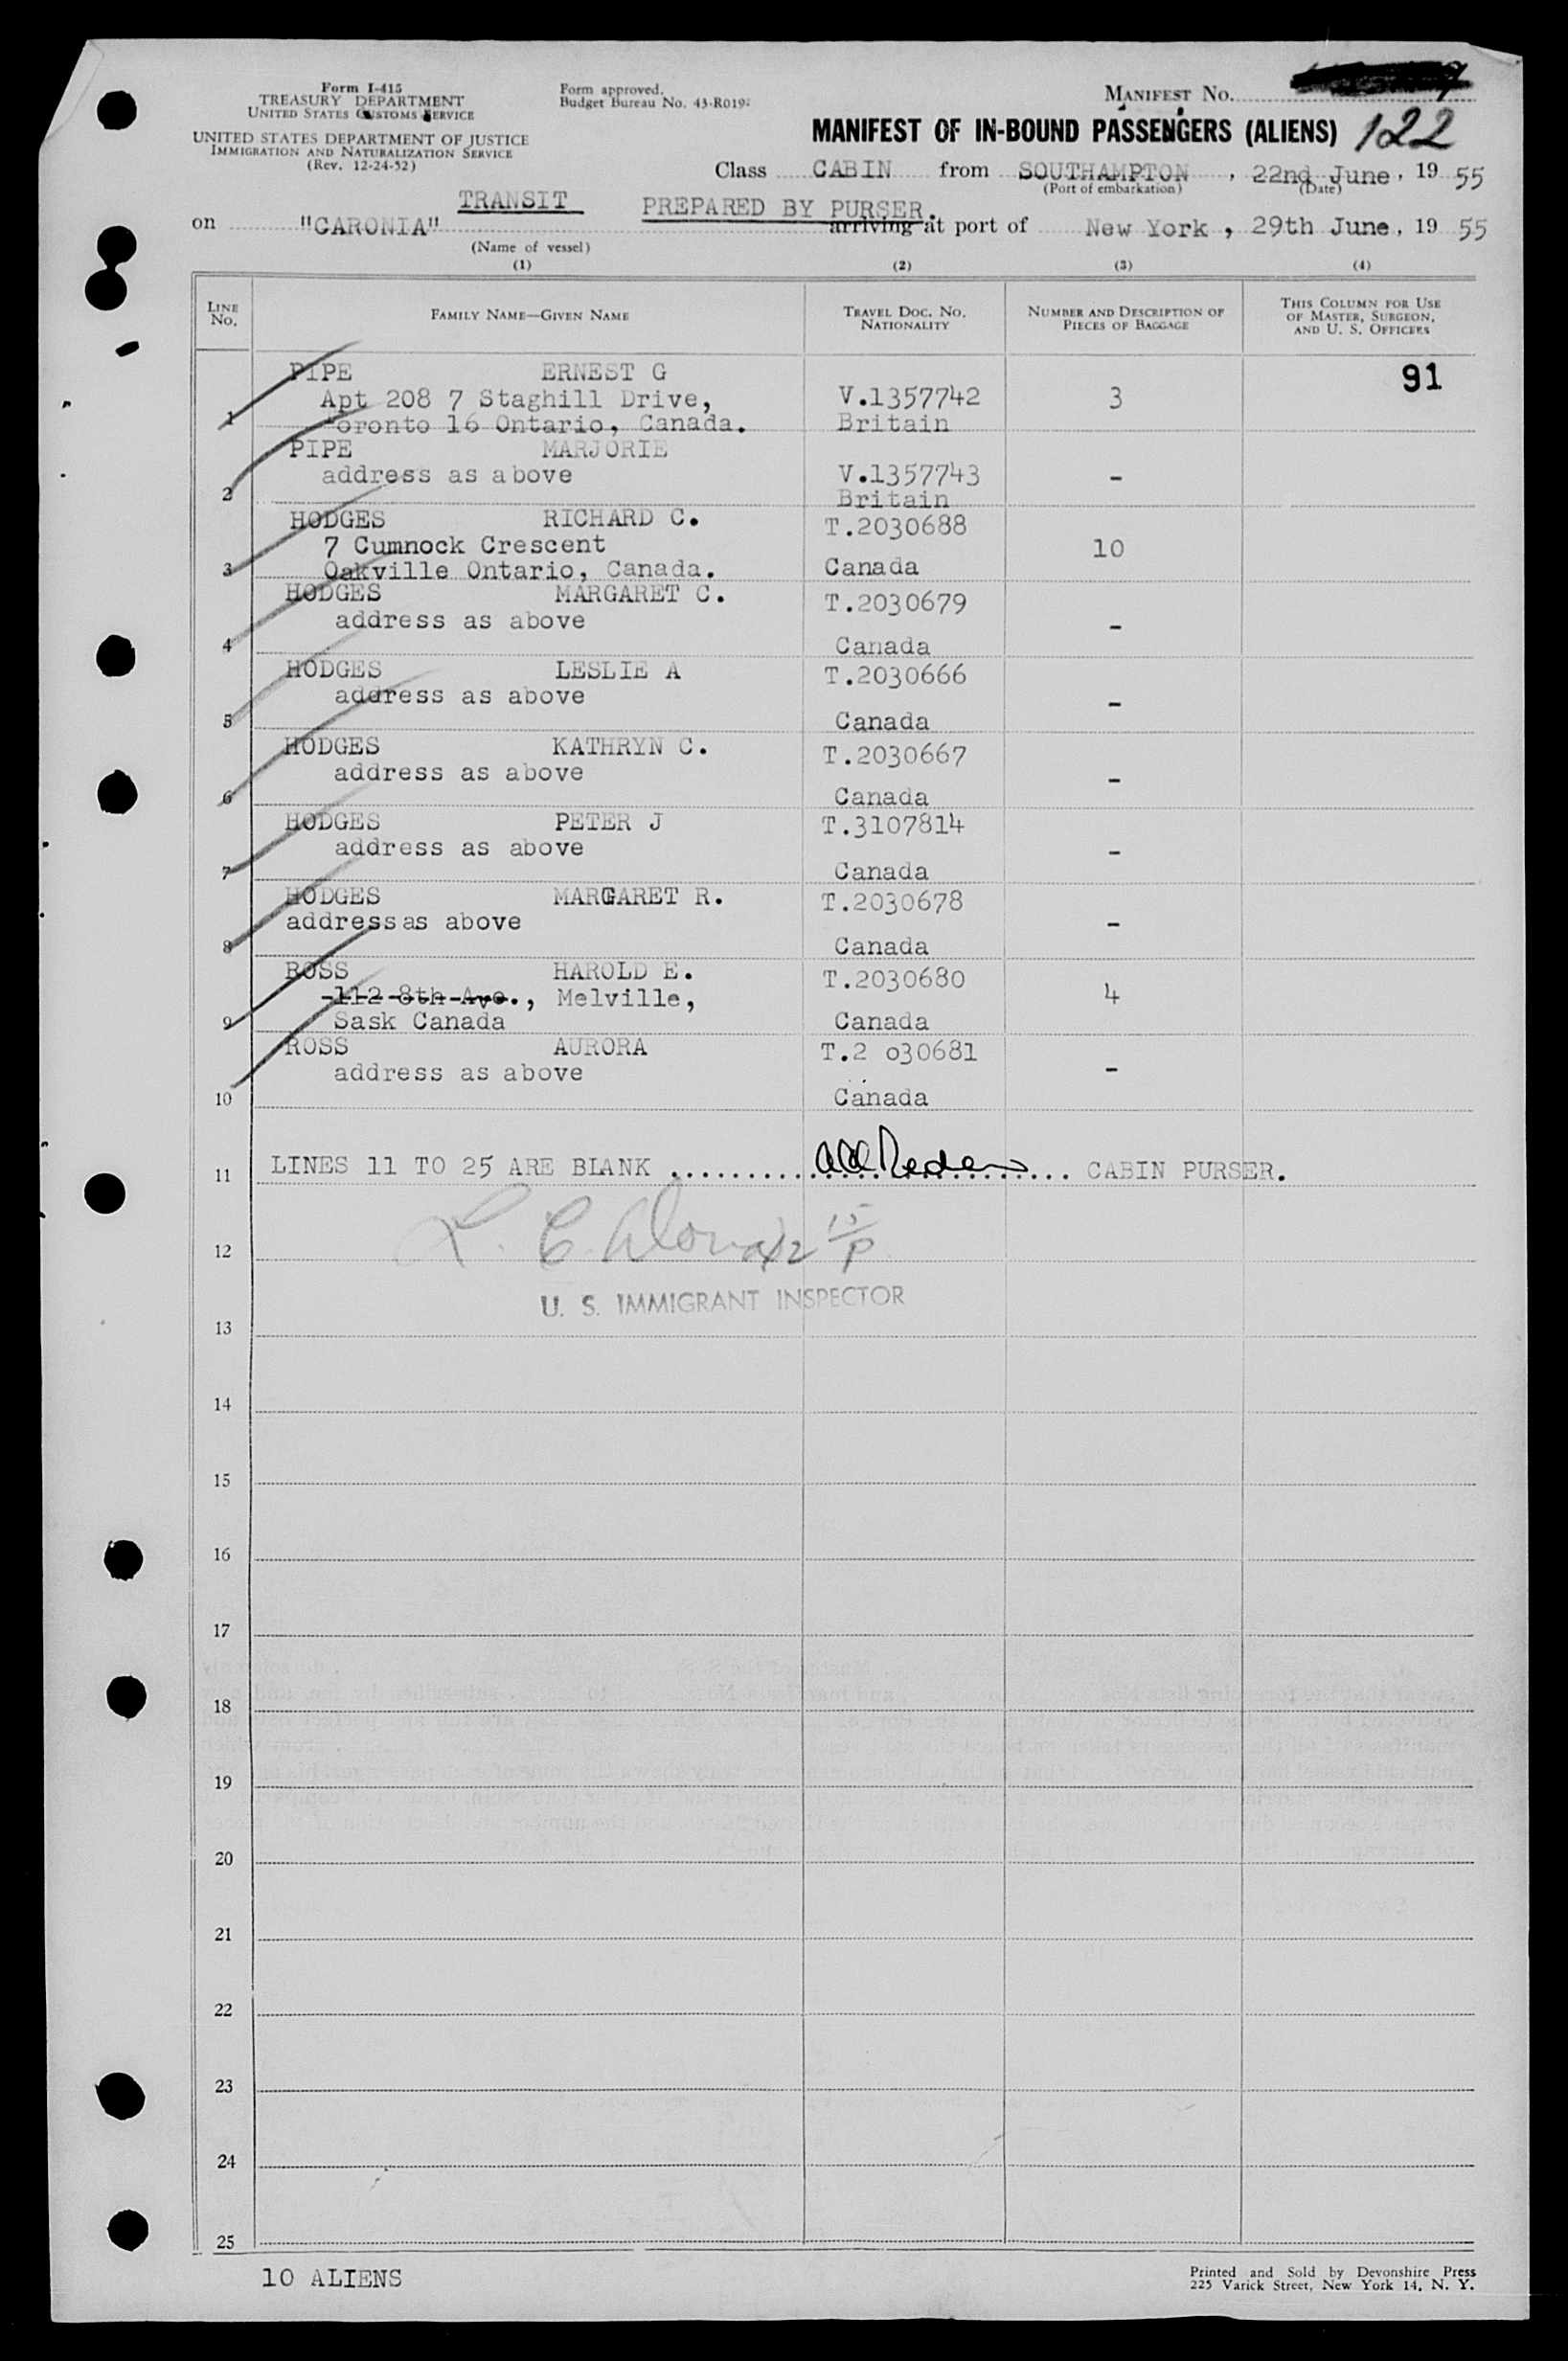 Form I-415
TREASURY DEPARTMENT
UNITED STATES CUSTOMS SERVICE
UNITED STATES DEPARTMENT OF JUSTICE
IMMIGRATION AND NATURALIZATION SERVICE
(Rev. 12-24-52)
Form approved.
Budget Bureau No. 43-R019
MANIFEST No.
MANIFEST OF IN-BOUND PASSENGERS (ALIENS) 122
Class CABIN from SOUTHAMPTON, 22nd June, 19 55
(Port of embarkation) (Date)
TRANSIT PREPARED BY PURSER.
on "CARONIA" arriving at port of New York, 29th June, 19 55
(Name of vessel)
(1) (2) (3) (4)
LINE No. FAMILY NAME—GIVEN NAME TRAVEL DOC. NO. NATIONALITY NUMBER AND DESCRIPTION OF PIECES OF BAGGAGE THIS COLUMN FOR USE OF MASTER, SURGEON, AND U. S. OFFICERS
PIPE ERNEST G 91
Apt 208 7 Staghill Drive, V.1357742 3
1 Toronto 16 Ontario, Canada. Britain
PIPE MARJORIE
address as above V.1357743 -
2 Britain
HODGES RICHARD C. T.2030688
7 Cumnock Crescent 10
3 Oakville Ontario, Canada. Canada
HODGES MARGARET C. T.2030679
address as above -
4 Canada
HODGES LESLIE A T.2030666
address as above -
5 Canada
HODGES KATHRYN C. T.2030667
address as above -
6 Canada
HODGES PETER J T.3107814
address as above -
7 Canada
HODGES MARGARET R. T.2030678
address as above -
8 Canada
ROSS HAROLD E. T.2030680
112 8th Ave., Melville, 4
9 Sask Canada Canada
ROSS AURORA T.2 030681
address as above -
10 Canada
11 LINES 11 TO 25 ARE BLANK .......... CABIN PURSER.
12
U. S. IMMIGRANT INSPECTOR
13
14
15
16
17
18
19
20
21
22
23
24
25
10 ALIENS
Printed and Sold by Devonshire Press
225 Varick Street, New York 14, N. Y.